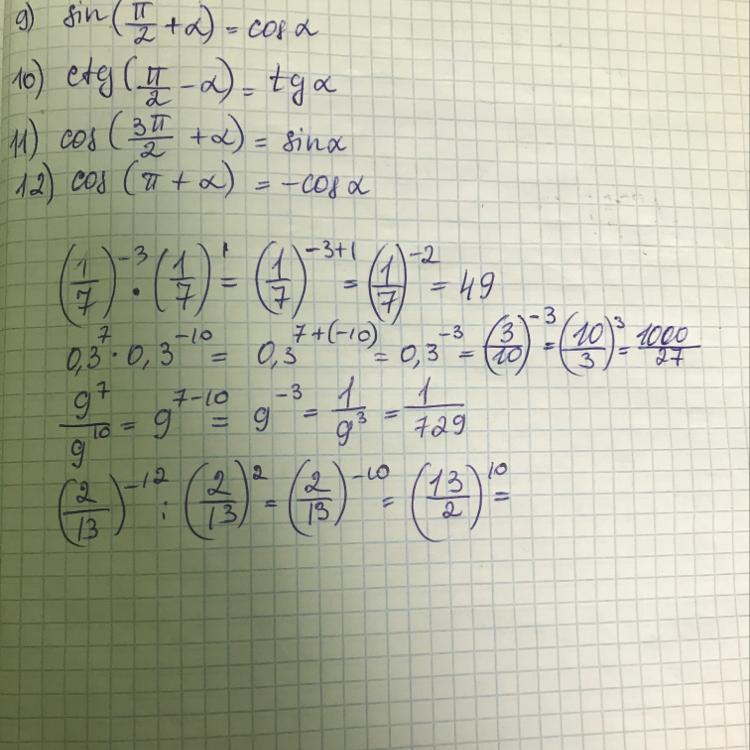 9) sin(π/2 + α) = cos α
10) ctg(π/2 − α) = tg α
11) cos(3π/2 + α) = sin α
12) cos(π + α) = −cos α
(1/7)⁻³ · (1/7)¹ = (1/7)⁻³⁺¹ = (1/7)⁻² = 49
0,3⁷ · 0,3⁻¹⁰ = 0,3⁷⁺⁽⁻¹⁰⁾ = 0,3⁻³ = (3/10)⁻³ = (10/3)³ = 1000/27
9⁷/9¹⁰ = 9⁷⁻¹⁰ = 9⁻³ = 1/9³ = 1/729
(2/13)⁻¹² : (2/13)² = (2/13)⁻¹⁰ = (13/2)¹⁰ =